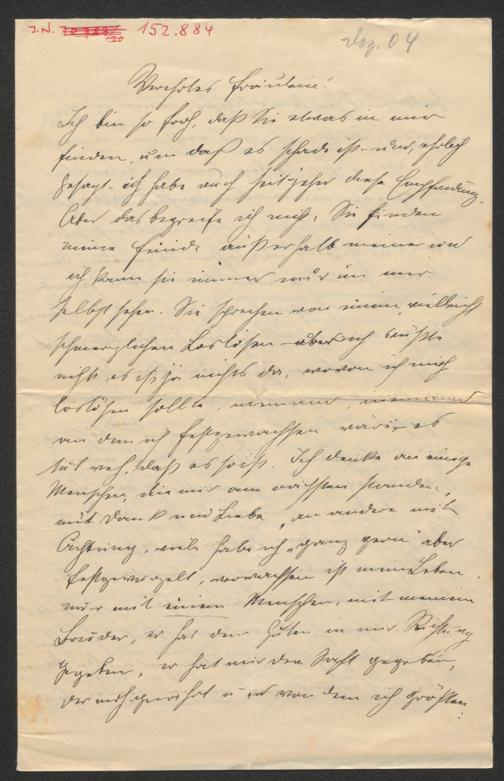 J.N. 152.884
Dez. 04
Verehrtes Fräulein!
Ich bin so froh, daß Sie etwas in mir
finden, um daß es schade ist – und, ehrlich
gesagt – ich habe auch seit jeher diese Empfindung.
Aber das begreife ich nicht, Sie finden
meine Feinde außerhalb meiner und
ich kann sie immer nur in mir
selbst sehen. Sie sprechen von einem, vielleicht
schmerzlichen Loslösen – aber ich wüßte
nichts, es ist ja nichts da, wovon ich mich
loslösen sollte, niemand, niemand
an dem ich festgewachsen wäre – es
tut weh, daß es so ist. Ich denke an einige
Menschen, die mir am nächsten standen,
mit Dank und Liebe, an andere mit
Achtung, viele habe ich „ganz gern" aber
festgewurzelt, verwachsen ist mein Leben
nur mit einem Menschen, mit meinem
Bruder, er hat dem Guten in mir Richtung
gegeben, er hat mir den Saft gegeben,
der mich genährt und von dem ich größten